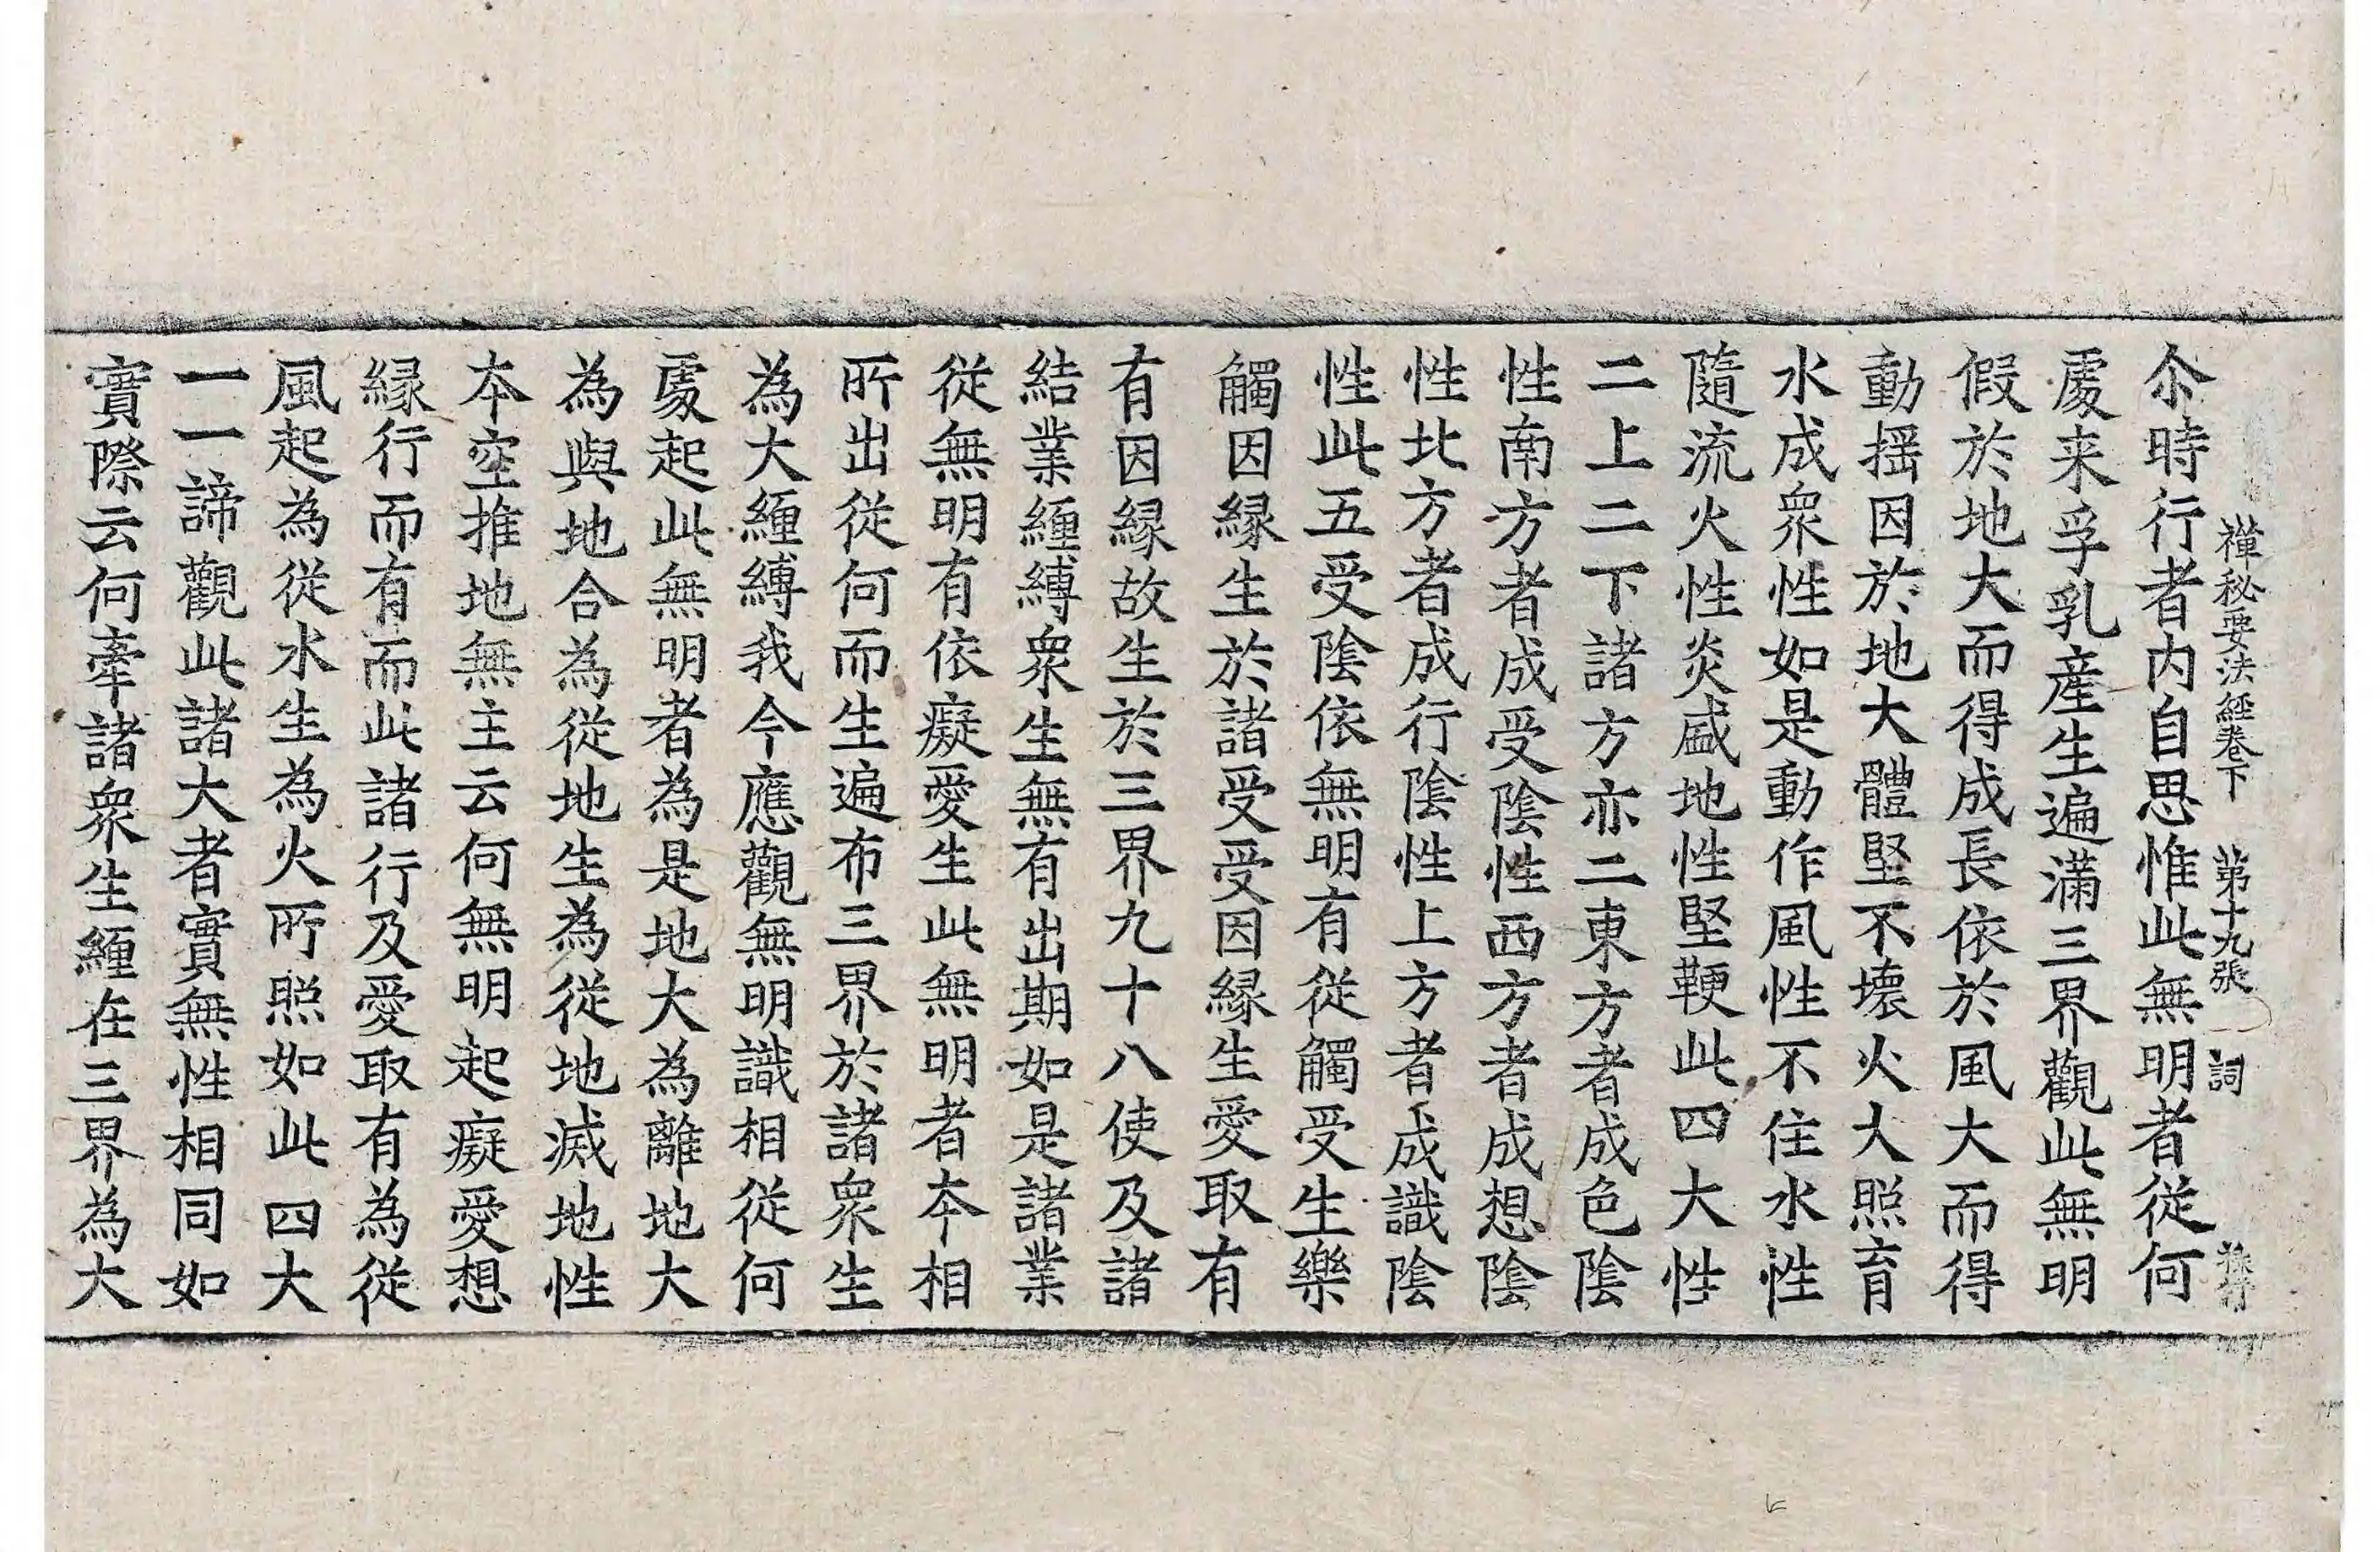 禪秘要法經卷下　第十九張　詞
尒時行者内自思惟此無明者從何
處来孚乳産生遍滿三界觀此無明
假於地大而得成長依於風大而得
動揺因於地大體堅不壊火大照育
水成衆性如是動作風性不住水性
隨流火性炎盛地性堅鞕此四大性
二上二下諸方亦二東方者成色陰
性南方者成受陰性西方者成想陰
性北方者成行陰性上方者成識陰
性此五受陰依無明有從觸受生樂
觸因縁生於諸受受因縁生愛取有
有因縁故生於三界九十八使及諸
結業纏縛衆生無有出期如是諸業
從無明有依癡愛生此無明者夲相
所出從何而生遍布三界於諸衆生
為大纏縛我今應觀無明識相從何
處起此無明者為是地大為離地大
為與地合為從地生為從地滅地性
夲空推地無主云何無明起癡愛想
縁行而有而此諸行及愛取有為從
風起為從水生為火所照如此四大
一一諦觀此諸大者實無性相同如
實際云何牽諸衆生纏在三界為大